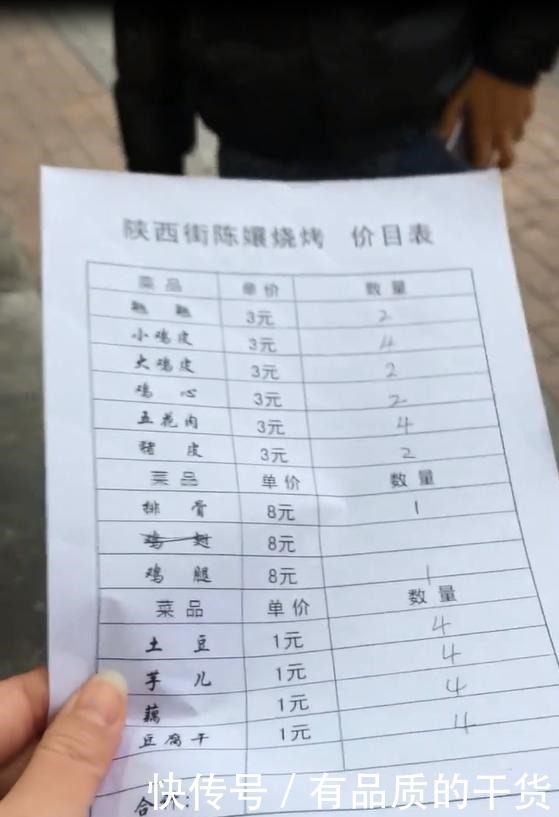 陕西街陈孃烧烤 价目表
菜品 单价 数量
3元 2
小鸡皮 3元 4
大鸡皮 3元 2
鸡心 3元 2
五花肉 3元 4
猪皮 3元 2
菜品 单价 数量
排骨 8元 1
鸡翅 8元
鸡腿 8元 1
菜品 单价 数量
土豆 1元 4
芋儿 1元 4
藕 1元 4
豆腐干 1元 4
合
快传号/有品质的干货